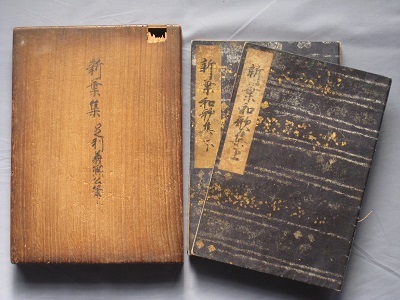 新葉集 足利公筆
新葉和歌集下
新葉和歌集上